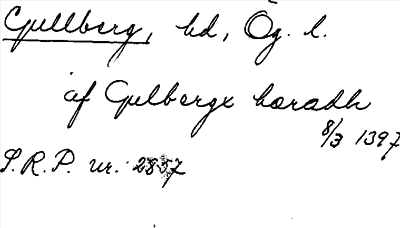 Gullberg, hd, Ög. l.
af Gulbergx høradh
8/3 1397
S.R.P. nr. 2857